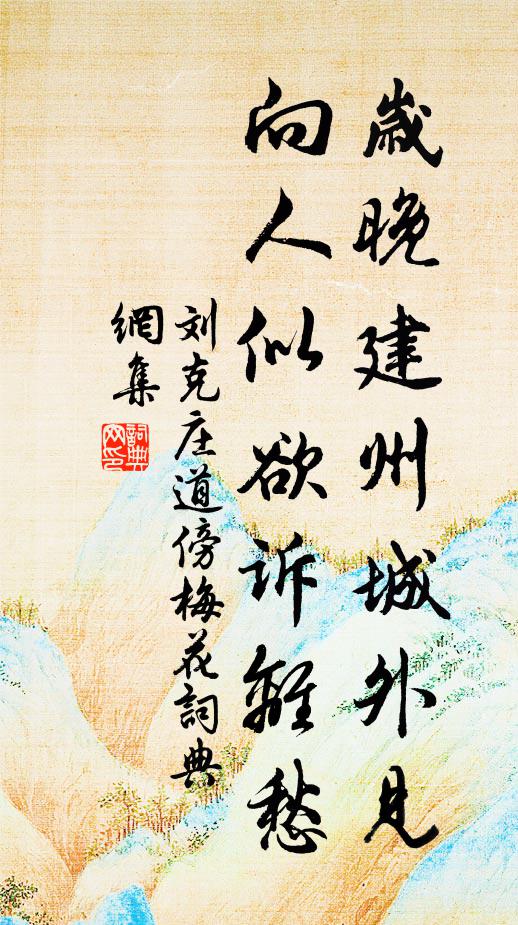 歲晚建州城外見
向人似欲訴離愁
刘克庄道傍梅花詞典
網集
詞典
网印